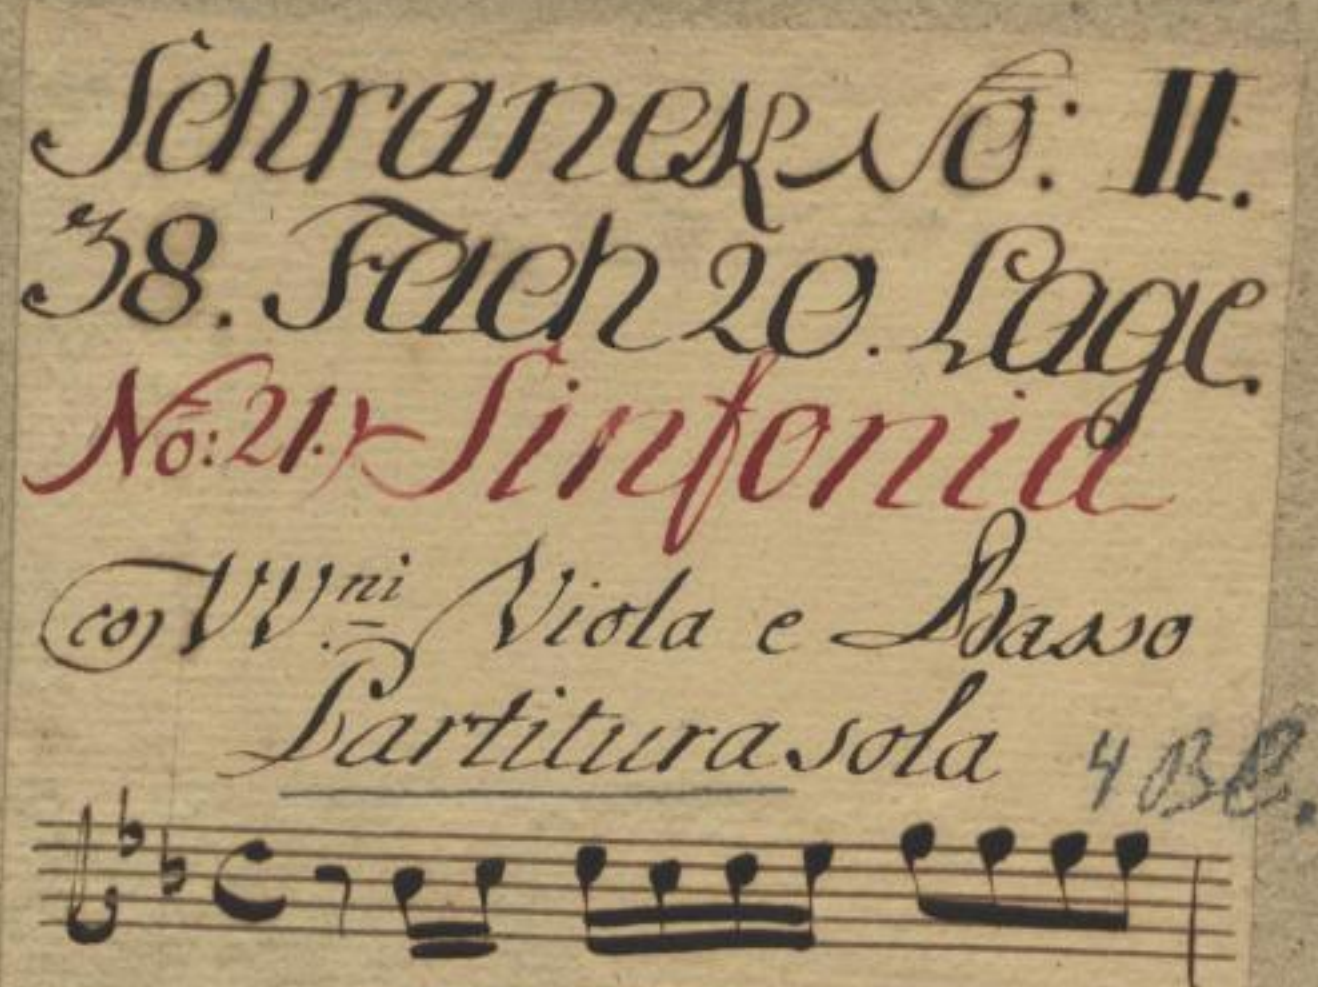 Schranck No: II.
38. Fach 20. Lage.
No: 21.) Sinfonia
co VV.ni Viola e Basso
Partitura sola
4 Bl.